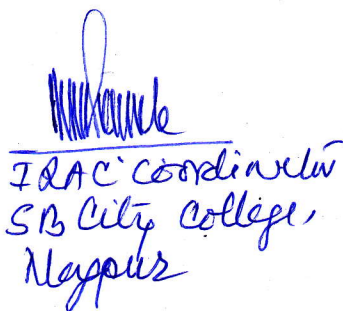 IQAC Coordinator
SB City College,
Nagpur